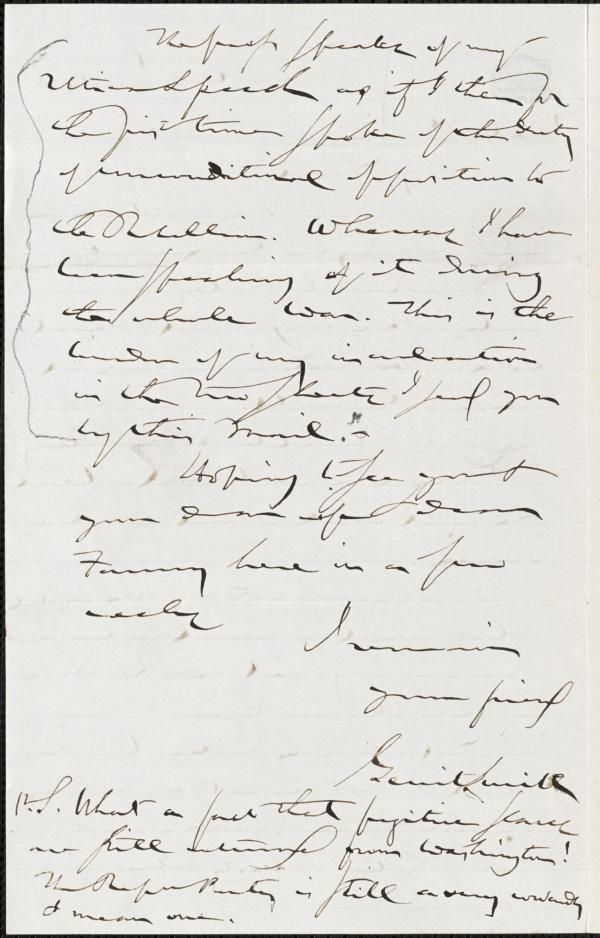 The press speaks of my
Utica Speech as if I then for
the first time spoke of the duty
of unconditional opposition to
the Rebellion. Whereas I have
been speaking of it during
the whole War. This is the
burden of my inculcation
in the two Sheets I send you
by this mail.
Hoping to see you &
your dear wife & dear
Fanny here in a few
weeks
I remain
your friend
Gerrit Smith
P.S. What a fact that fugitive slaves
are still returned from Washington!
The Repub Party is still a very cowardly
& mean one.